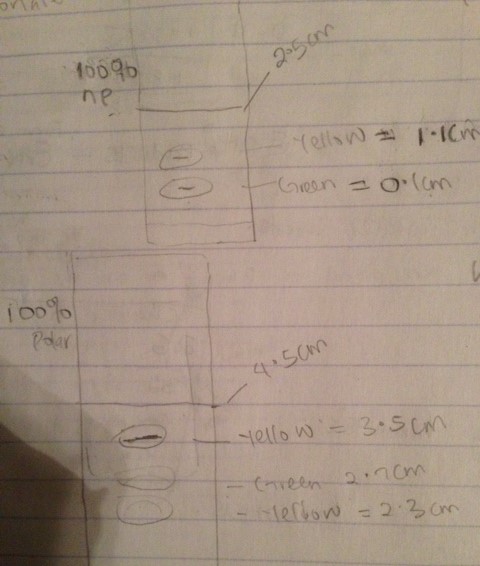 2.5cm
100%
np
Yellow = 1.1cm
Green = 0.1cm
100%
Polar
4.5cm
Yellow = 3.5cm
Green 2.7cm
Yellow = 2.3cm